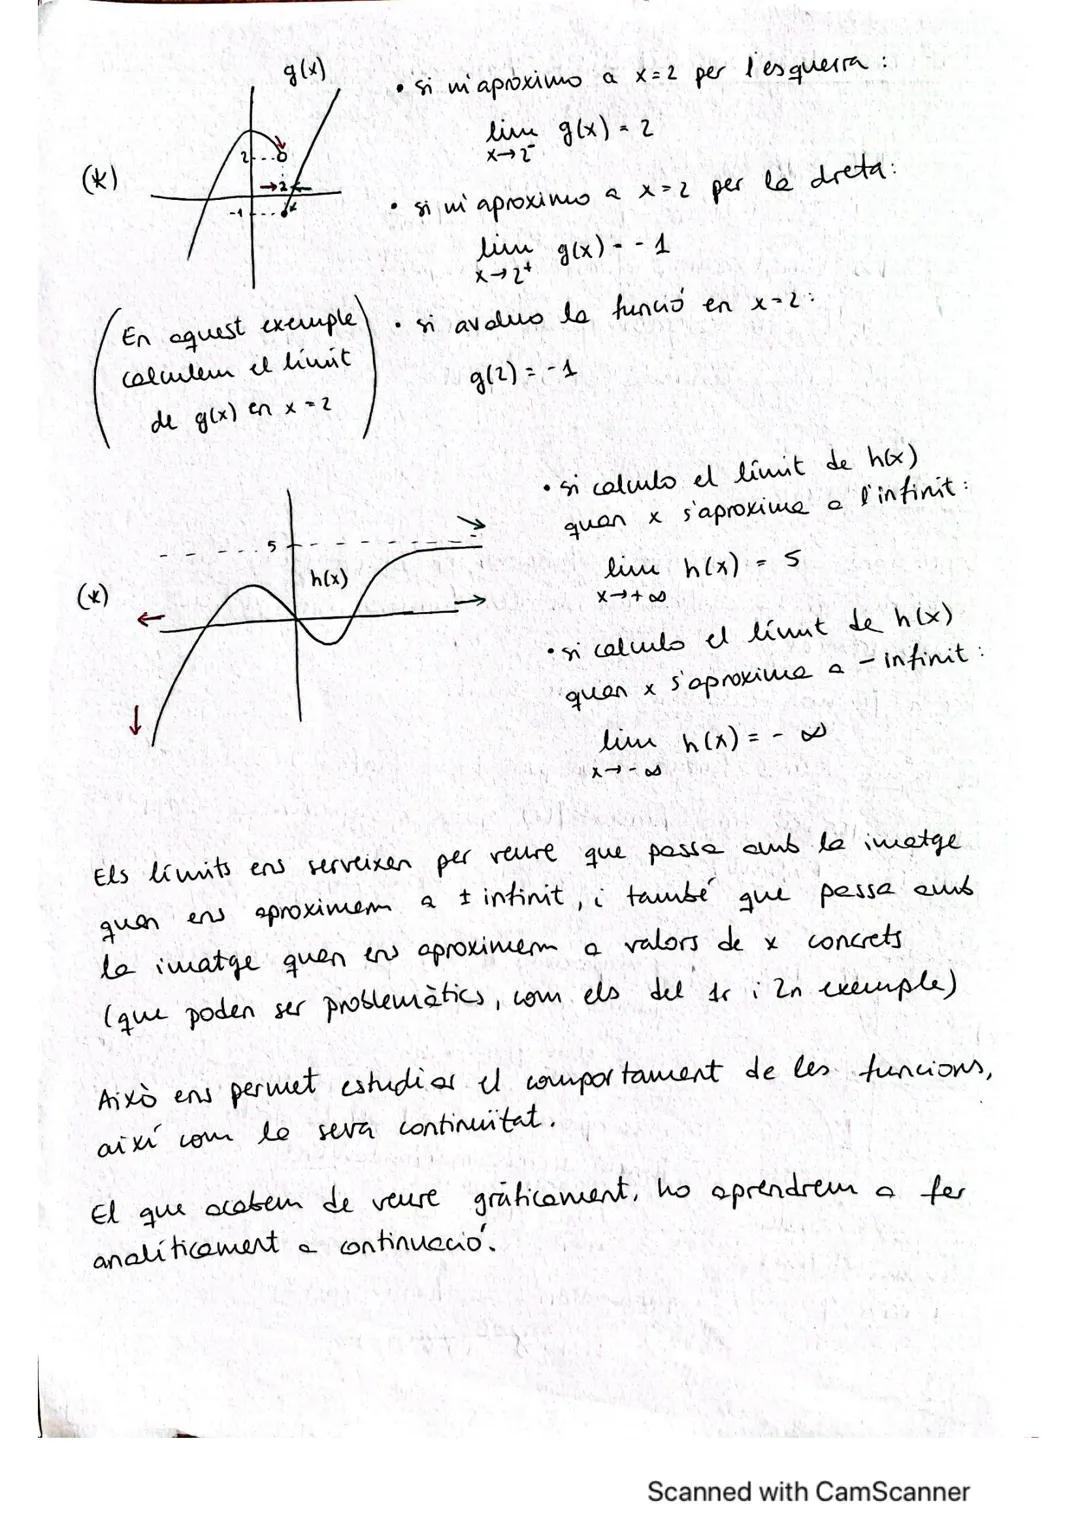 g(x)
• si m'aproximo a x=2 per l'esquerra:
lim g(x) = 2
x→2⁻
(*)
2
→2←
-1
• si m'aproximo a x=2 per la dreta:
lim g(x) = -1
x→2⁺
(En aquest exemple
calculem el límit
de g(x) en x=2)
• si avaluo la funció en x=2:
g(2) = -1
• si calculo el límit de h(x)
quan x s'aproxima a l'infinit:
lim h(x) = 5
x→+∞
(*)
5
h(x)
• si calculo el límit de h(x)
quan x s'aproxima a - infinit:
lim h(x) = -∞
x→-∞
Els límits ens serveixen per veure que passa amb la imatge
quan ens aproximem a ± infinit, i també que passa amb
la imatge quan ens aproximem a valors de x concrets
(que poden ser problemàtics, com els del 1r i 2n exemple)
Això ens permet estudiar el comportament de les funcions,
així com la seva continuïtat.
El que acabem de veure gràficament, ho aprendrem a fer
analíticament a continuació.
Scanned with CamScanner